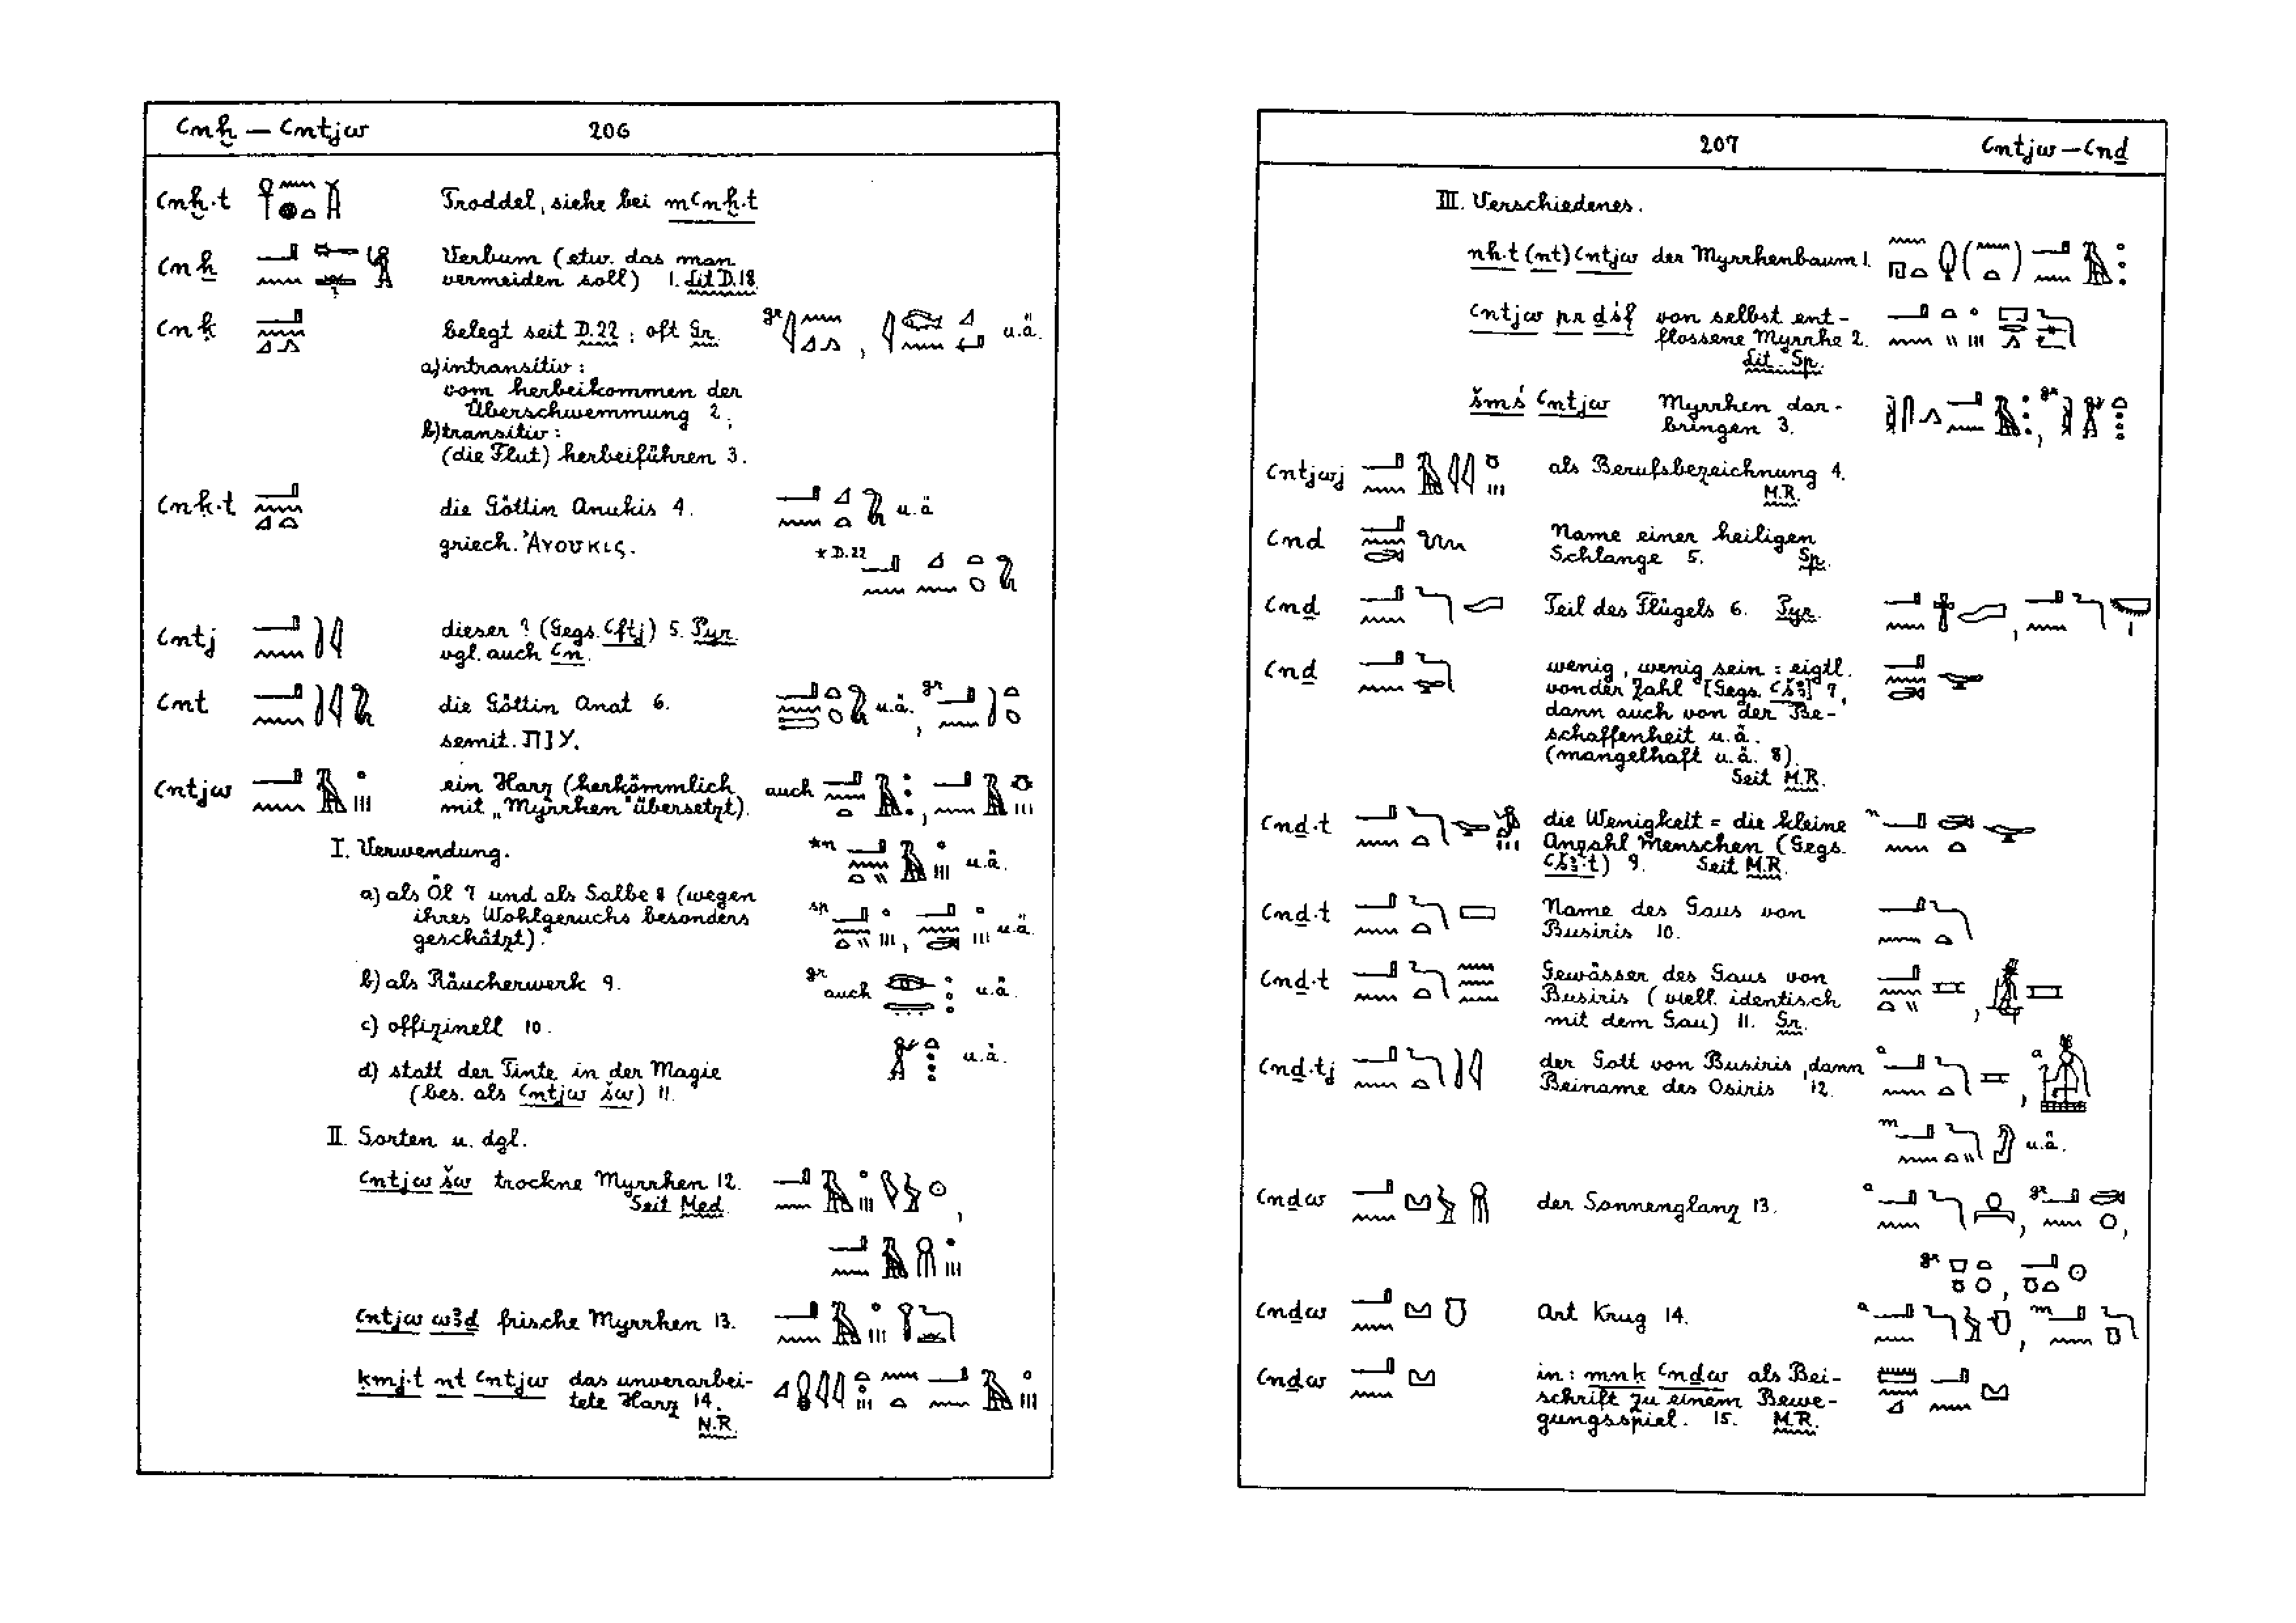 Ꜥnḫ — Ꜥntjw 206
Ꜥnḫ.t Troddel, siehe bei mꜤnḫ.t
Ꜥnẖ Verbum (etw. das man
vermeiden soll) 1. Lit D.18.
Ꜥnḳ belegt seit D.22 ; oft Gr. gr , u.ä.
a) intransitiv :
vom herbeikommen der
Überschwemmung 2 ;
b) transitiv :
(die Flut) herbeiführen 3.
Ꜥnḳ.t die Göttin Anukis 4. u.ä
griech. Ἀνουκις. * D.22
Ꜥntj dieser ? (Gegs. Ꜥftj) 5. Pyr.
vgl. auch Ꜥn.
Ꜥnt die Göttin Anat 6. u.ä. , gr
semit. ענת.
Ꜥntjw ein Harz (herkömmlich auch ,
mit „Myrrhen" übersetzt).
I. Verwendung. *n u.ä.
a) als Öl 7 und als Salbe 8 (wegen
ihres Wohlgeruchs besonders sp , u.ä.
geschätzt).
b) als Räucherwerk 9. gr auch u.ä.
c) offizinell 10.
d) statt der Tinte in der Magie u.ä.
(bes. als Ꜥntjw šw) 11.
II. Sorten u. dgl.
Ꜥntjw šw trockne Myrrhen 12. ,
Seit Med.
Ꜥntjw wꜣḏ frische Myrrhen 13.
ḳmj.t nt Ꜥntjw das unverarbei-
tete Harz 14.
N.R.
207 Ꜥntjw — Ꜥnḏ
III. Verschiedenes.
nh.t (nt) Ꜥntjw der Myrrhenbaum 1. ( )
Ꜥntjw pr ḏś.f von selbst ent-
flossene Myrrhe 2.
Lit. Sp.
šmś Ꜥntjw Myrrhen dar- , gr
bringen 3.
Ꜥntjwj als Berufsbezeichnung 4.
M.R.
Ꜥnd Name einer heiligen
Schlange 5. Sp.
Ꜥnḏ Teil des Flügels 6. Pyr. ,
Ꜥnḏ wenig, wenig sein : eigtl.
von der Zahl [Gegs. Ꜥšꜣ] 7,
dann auch von der Be-
schaffenheit u.ä.
(mangelhaft u.ä. 8).
Seit M.R.
Ꜥnḏ.t die Wenigkeit = die kleine n
Anzahl Menschen (Gegs.
Ꜥšꜣ.t) 9. Seit M.R.
Ꜥnḏ.t Name des Gaus von
Busiris 10.
Ꜥnḏ.t Gewässer des Gaus von
Busiris (viell. identisch ,
mit dem Gau) 11. Gr.
Ꜥnḏ.tj der Gott von Busiris, dann a , a
Beiname des Osiris 12.
m u.ä.
Ꜥnḏw der Sonnenglanz 13. a , gr ,
gr ,
Ꜥnḏw Art Krug 14. a , m
Ꜥnḏw in : mnk Ꜥnḏw als Bei-
schrift zu einem Bewe-
gungsspiel. 15. M.R.